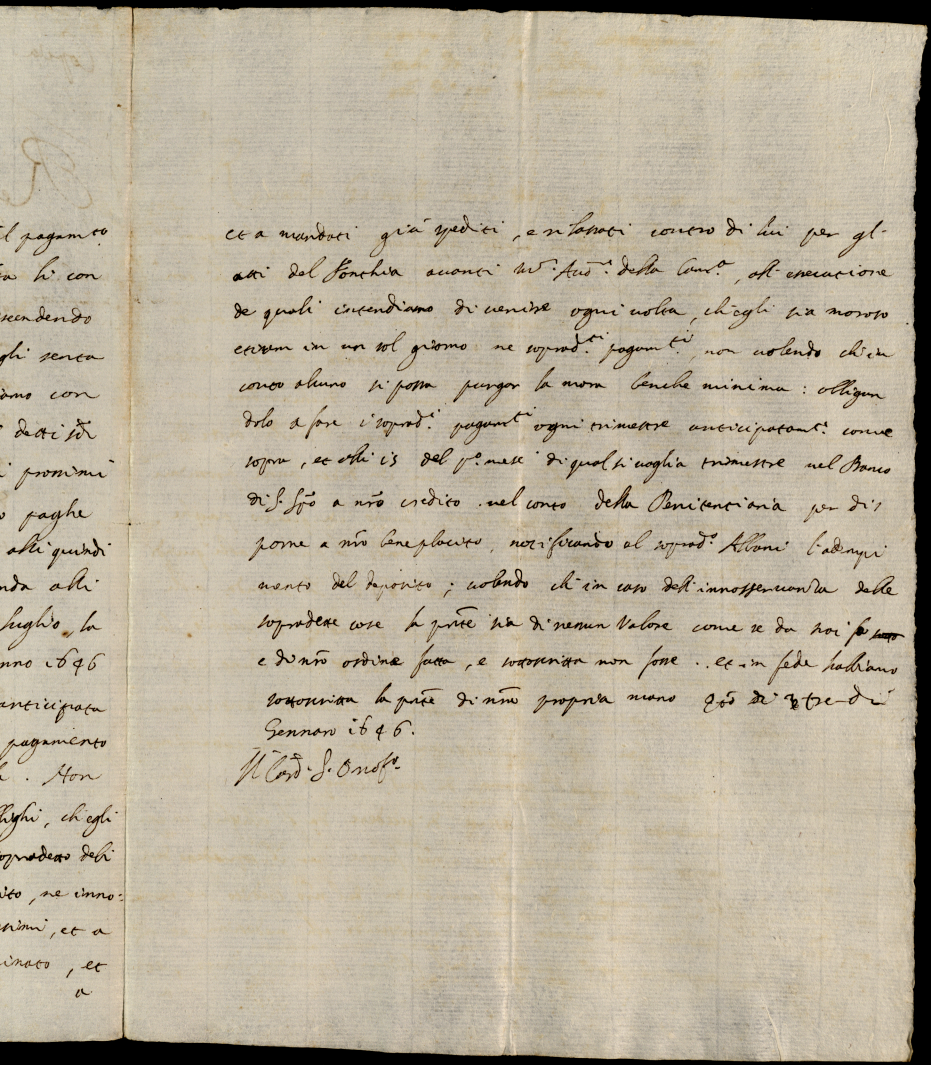 l pagam.to
ta li con
scendendo
gli senta
iamo con
detti
i prossimi
o paghe
alli quindi
nda alli
luglio, la
nno 1646
anticipata
pagamento
. Non
lighi, ch'egli
sopradetto debi
ito, ne inno-
simi, et a
inato, et
a
et a mandati già spediti, e rilassati contro di lui per gl'
atti del Fonthia avanti M.r Aud.e della Cam.a, all'esecutione
de quali intendiamo di venire ogni volta, ch'egli sia moroso
etiam in un sol giorno ne soprad.ti pagam.ti, non volendo ch'in
conto alcuno si possa purgar la mora benche minima: obligan
dolo a fare i soprad.i pagam.ti ogni trimestre anticipatam.te come
sopra, et alli 15 del p.o mese di qual si voglia trimestre nel Banco
di S. Spo a nro credito nel conto della Penitentiaria per dis
porne a nro beneplacito, notificando al soprad.o Albani l'adempi
mento del deposito; volendo ch'in caso dell'innosservanza delle
sopradette cose la pnte sia di nessun valore come se da noi
e di nro ordine fatta, e sottoscritta non fosse. et in fede habbiamo
sottoscritta la pnte di nra propria mano tre di
Gennaro 1646.
Il Card. S. Onof.o